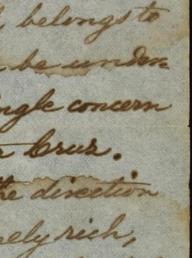 belongs to
be under=
ingle concern
Cruz.
the direction
ely rich,